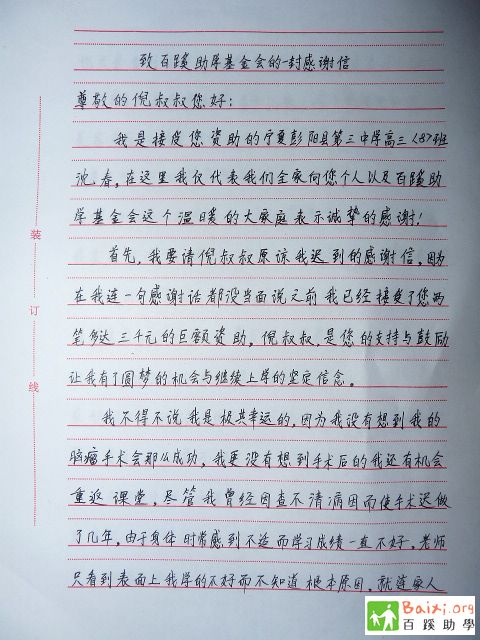 致百蹊助学基金会的一封感谢信
尊敬的倪叔叔您好：
我是接受您资助的宁夏彭阳县第三中学高三〈8〉班
沈春，在这里我仅代表我们全家向您个人以及百蹊助
学基金会这个温暖的大家庭表示诚挚的感谢！
首先，我要请倪叔叔原谅我迟到的感谢信，因为
在我连一句感谢话都没当面说之前我已经接受了您两
笔多达三千元的巨额资助，倪叔叔，是您的支持与鼓励
让我有了圆梦的机会与继续上学的坚定信念。
我不得不说我是极其幸运的，因为我没有想到我的
脑瘤手术会那么成功，我更没有想到手术后的我还有机会
重返课堂，尽管我曾经因查不清病因而使手术迟做
了几年，由于身体时常感到不适而学习成绩一直不好，老师
只看到表面上我学的不好而不知道根本原因，就连家人
装
订
线
Baixi.org
百蹊助學